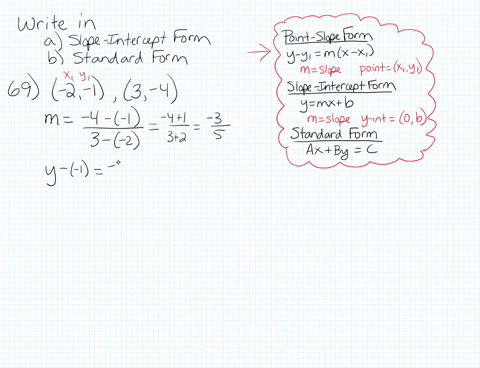 Write in
a) Slope-Intercept Form
b) Standard Form
x₁ y₁
69) (-2,-1) , (3,-4)
m = -4-(-1) / 3-(-2) = -4+1 / 3+2 = -3 / 5
y-(-1) = -
Point-Slope Form
y-y₁=m(x-x₁)
m=slope point=(x₁,y₁)
Slope-Intercept Form
y=mx+b
m=slope y-int=(0,b)
Standard Form
Ax+By=C